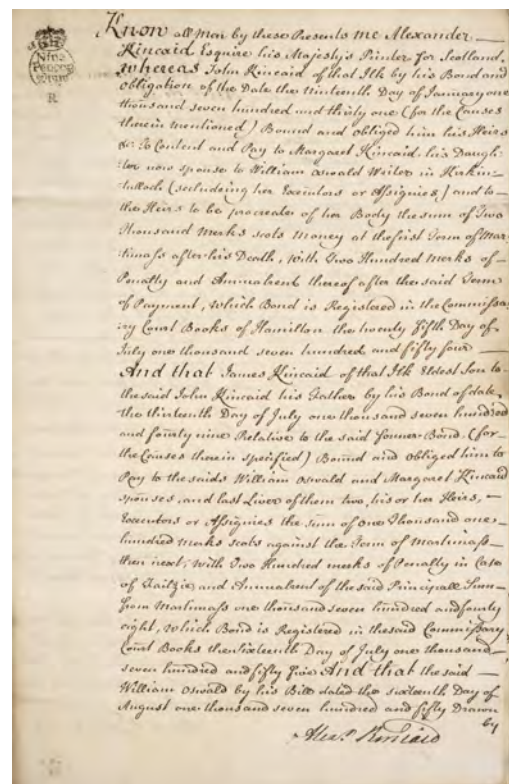 Nine
Pence
R
Know all Men by these Presents me Alexander
Kincaid Esquire his Majesty's Printer for Scotland,
whereas John Kincaid of that Ilk by his Bond and
obligation of the Date the Nineteenth Day of January one
thousand seven hundred and thirty one (for the Causes
therein mentioned) Bound and obliged him his Heirs
&c To Content and Pay to Margaret Kincaid his Daugh-
ter now spouse to William Oswald Writer in Kirkin-
tulloch (secludeing her Executors or Assignies) and to
the Heirs to be procreate of her Body the sum of Two
thousand Merks scots Money at the first Term of Mar-
timass after his Death, with Two Hundred Merks of
Penalty and Annualrent thereof after the said Term
of Payment, which Bond is Registered in the Commissa-
ry Court Books of Hamilton the twenty fifth Day of
July one thousand seven hundred and fifty four
And that James Kincaid of that Ilk Eldest Son to
the said John Kincaid his Father by his Bond of date
the thirteenth Day of July one thousand seven hundred
and fourty nine Relative to the said former Bond (for
the Causes therein specified) Bound and obliged him to
Pay to the saids William Oswald and Margaret Kincaid
spouses, and last Liver of them two, his or her Heirs,
Executors or Assignies the sum of one Thousand one
hundred Merks scots against the Term of Martimass
then next, with Two Hundred merks of Penalty in Case
of Failzie, and Annualrent of the said Principall Sum
from Martimass one thousand seven hundred and fourty
eight, which Bond is Registered in the said Commissary
Court Books the sixteenth Day of July one thousand
seven hundred and fifty five And that the said
William Oswald by his Bill dated the sixteenth Day of
August one thousand seven hundred and fifty Drawn
by
Alexr. Kincaid